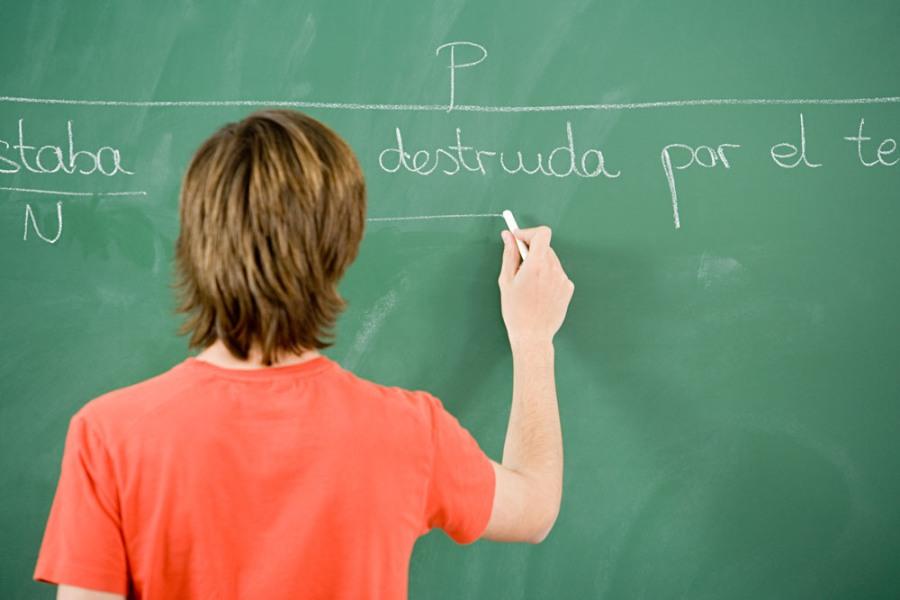 P
staba destruida por el te
N